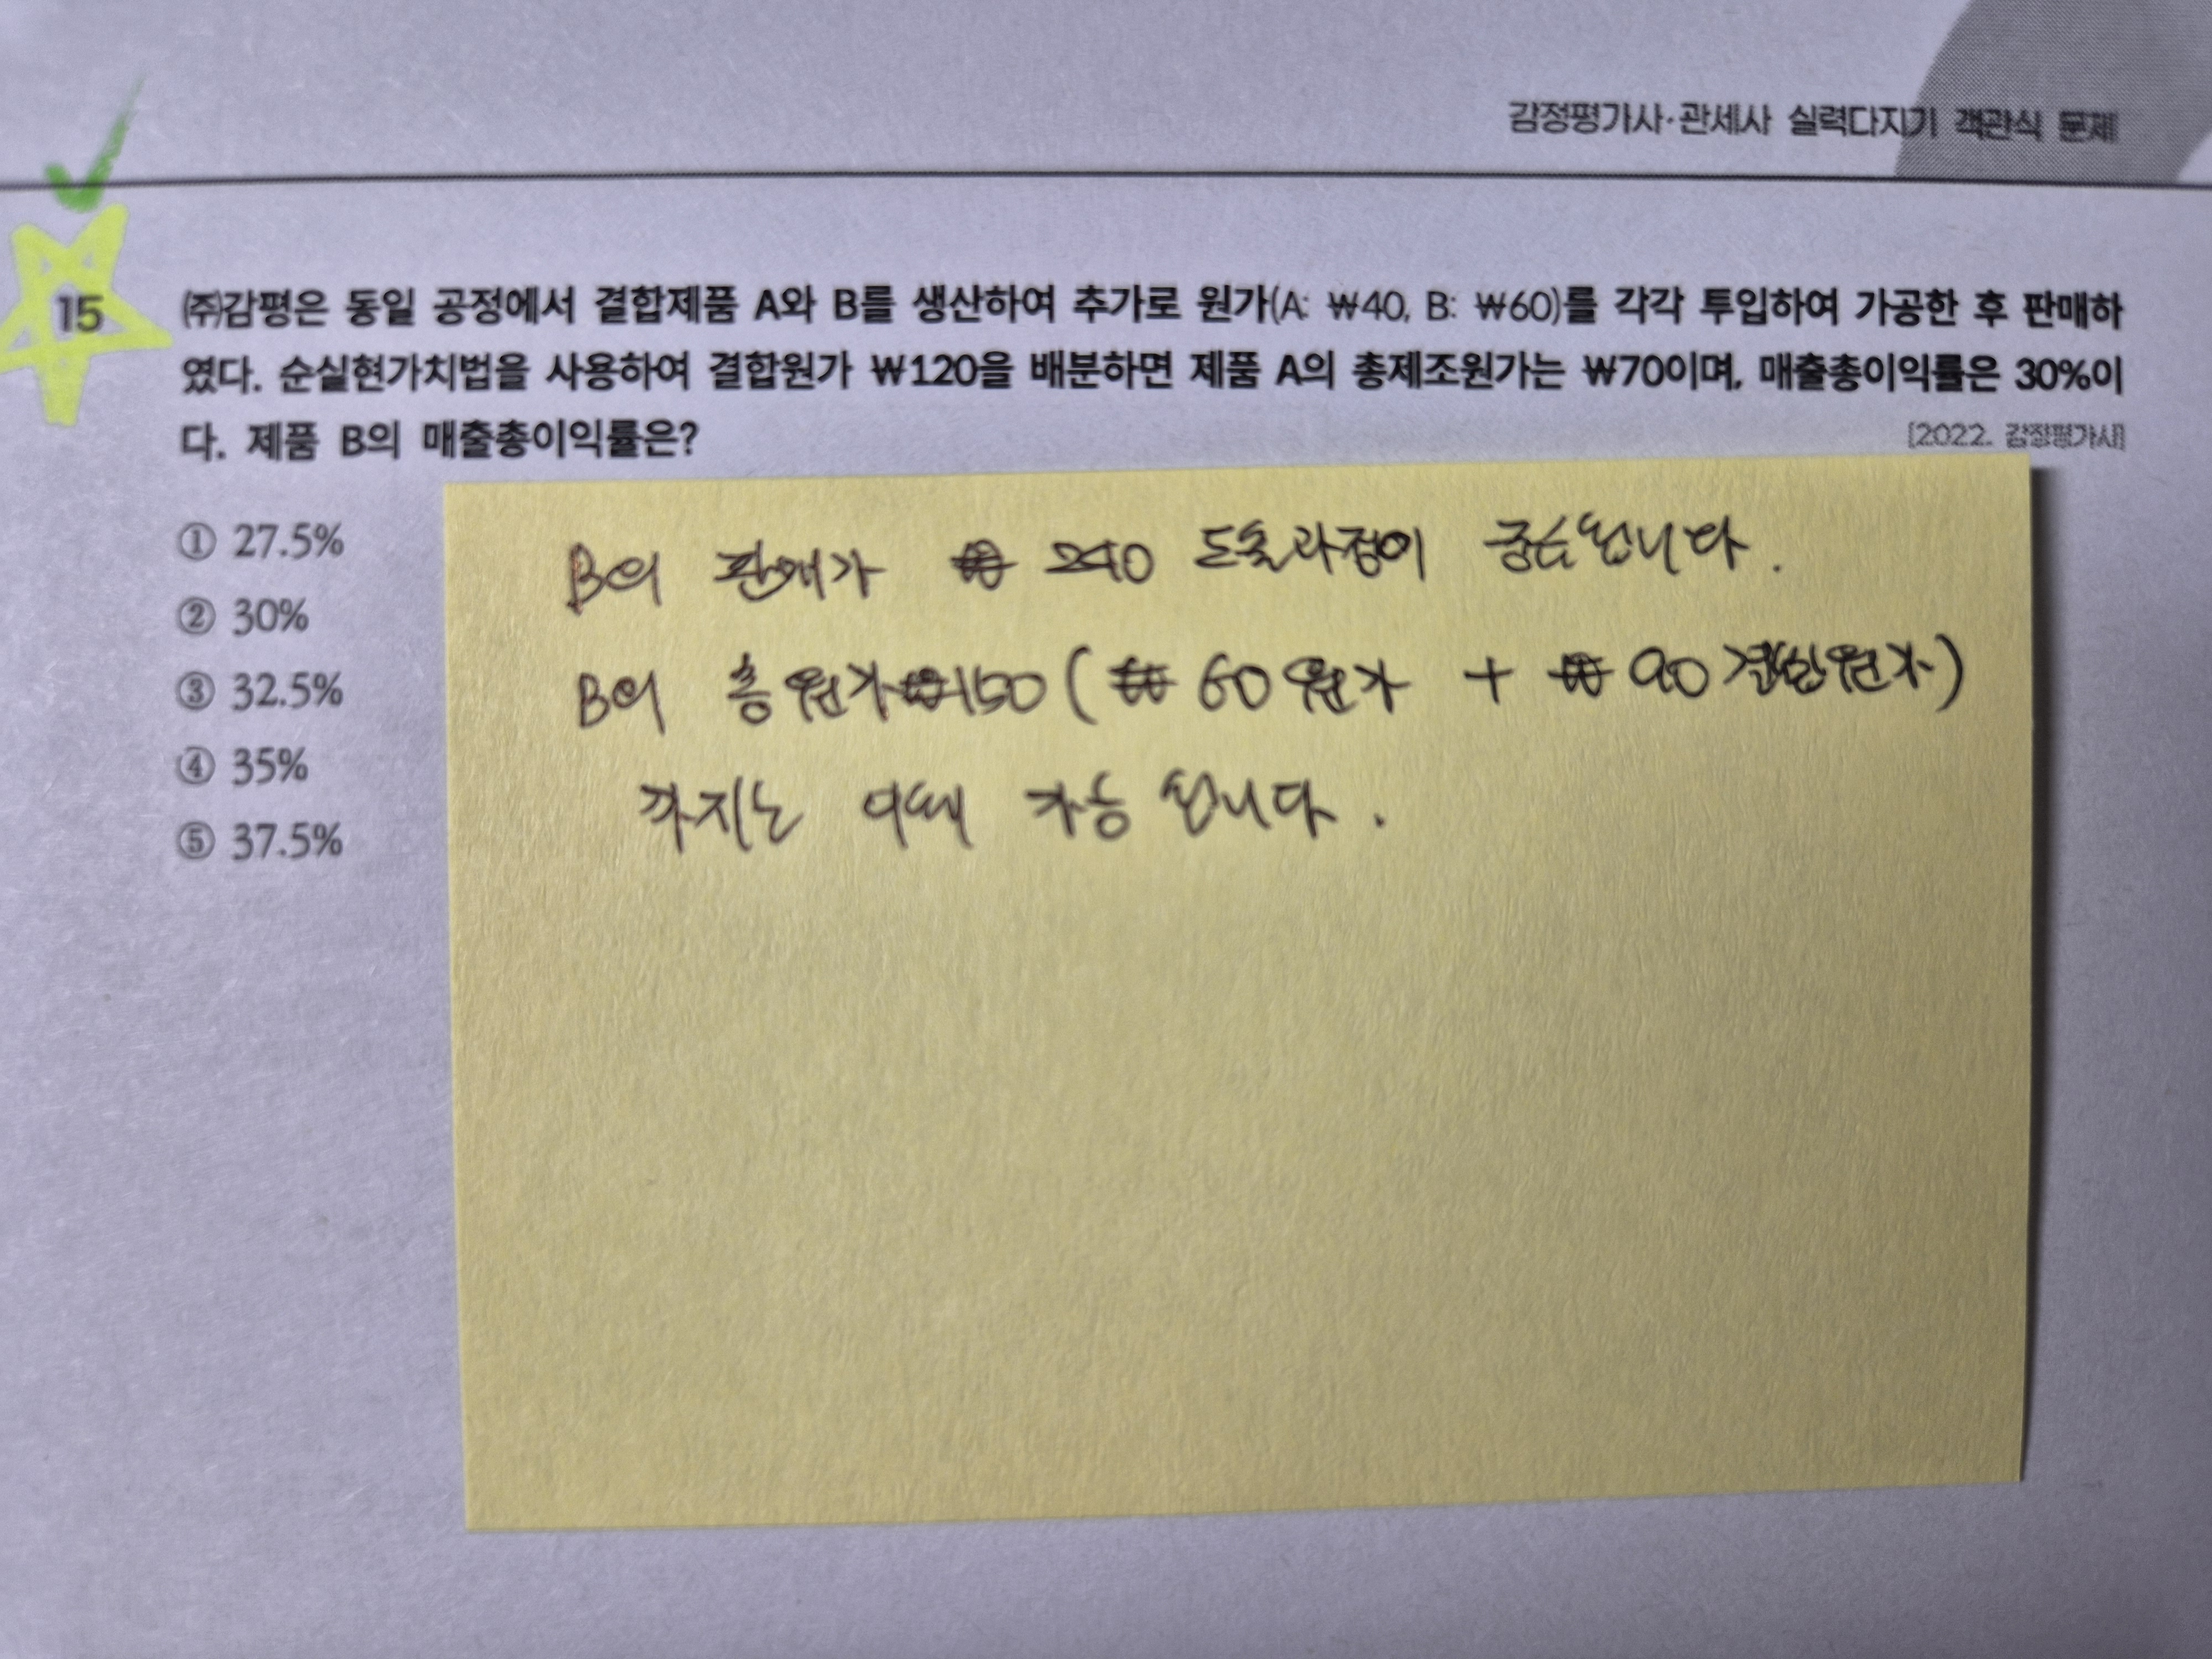 감정평가사·관세사 실력다지기 객관식 문제
15 ㈜감평은 동일 공정에서 결합제품 A와 B를 생산하여 추가로 원가(A: ₩40, B: ₩60)를 각각 투입하여 가공한 후 판매하
였다. 순실현가치법을 사용하여 결합원가 ₩120을 배분하면 제품 A의 총제조원가는 ₩70이며, 매출총이익률은 30%이
다. 제품 B의 매출총이익률은?
[2022. 감정평가사]
① 27.5%
② 30%
③ 32.5%
④ 35%
⑤ 37.5%
B의 판매가 ₩ 240 도출과정이 궁금합니다.
B의 총원가 ₩150 (₩ 60 원가 + ₩ 90 결합원가)
까지는 이해 가능합니다.